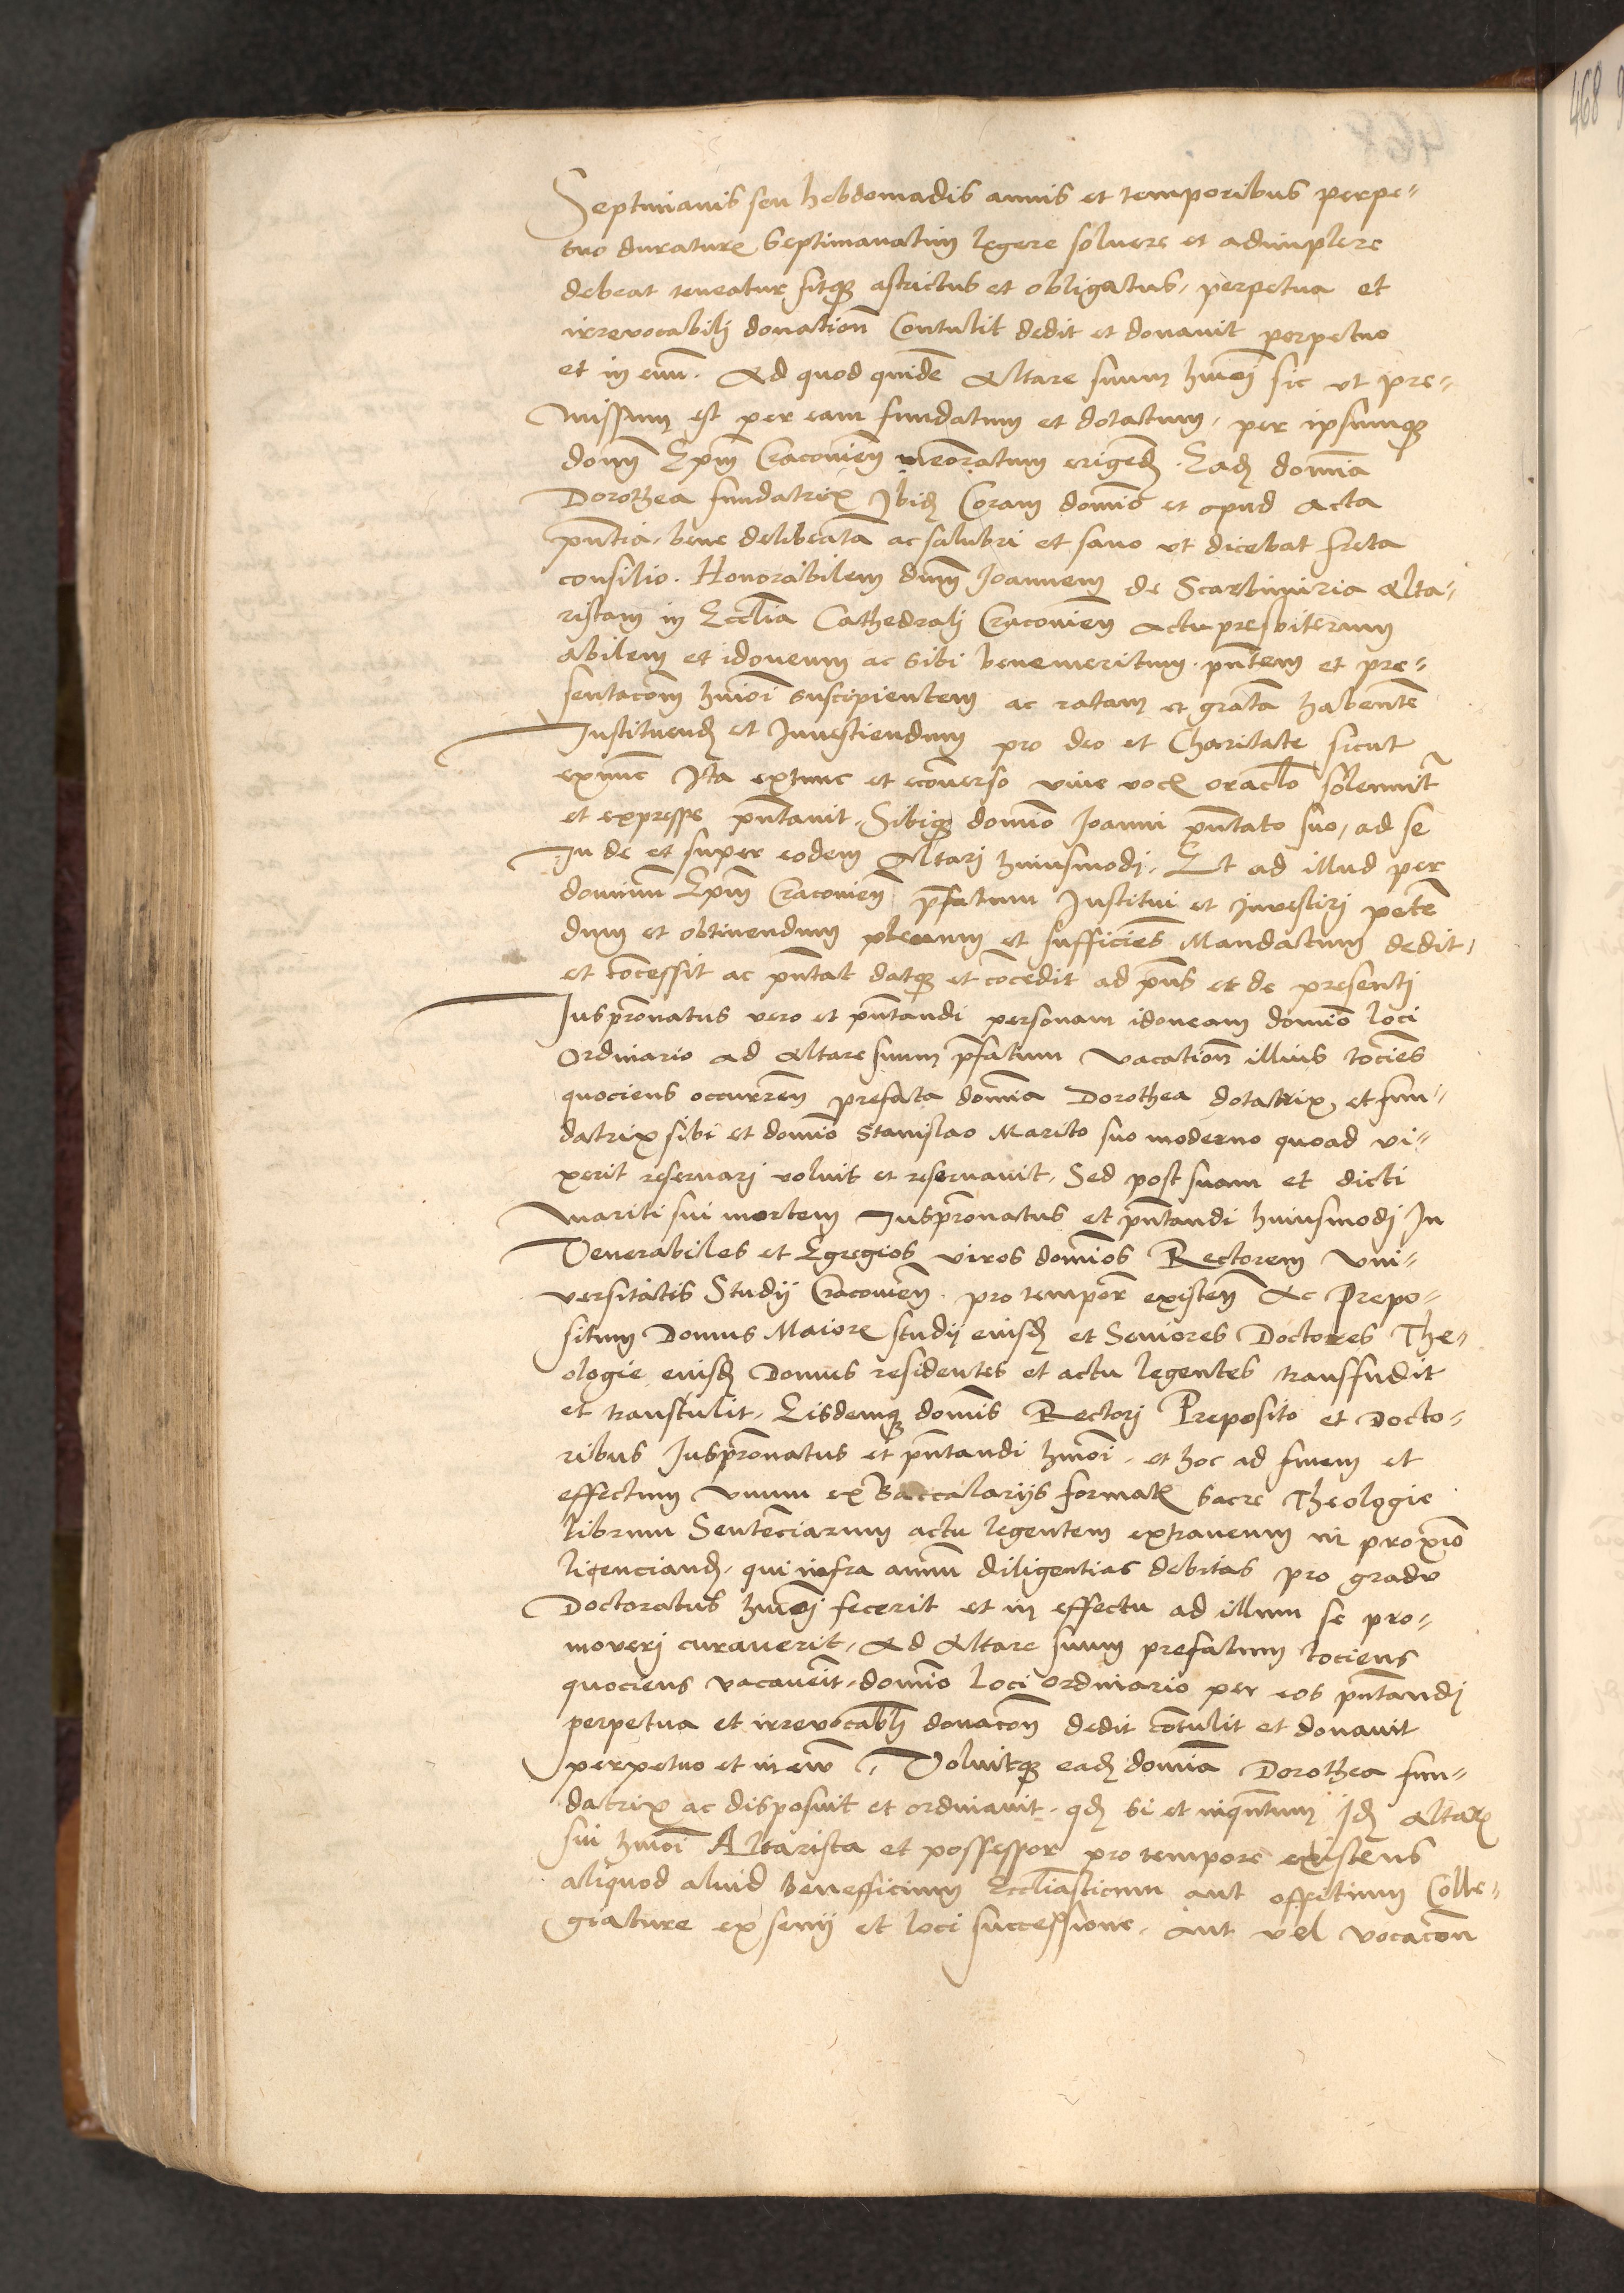 Septimanis seu hebdomadis annis et temporibus perpe-
tuo durature septimanatim legere soluere et adimplere
debeat teneatur sitq̃ astrictus et obligatus, perpetua et
irreuocabilj donationẽ Contulit dedit et donauit perpetuo
et in euũ. Ad quod quidẽ Altare suum hmõj sic ut pre-
missum est per eam fundatum et dotatum, per ipsumq̃
domĩ Epm̃ Cracovieñ meõratum erigeñd. Eadẽ domĩa
Dorothea fundatrix Ibidẽ Coram domĩo et apud Acta
pñtia, bene delibẽata ac salubri et sano ut dicebat freta
consilio. Honorabilem dnm̃ Joannem de Scarbimiria Alta-
ristam in Eccľia Cathedralj Cracovieñ actu presbiterum
abilem et idoneum ac sibi benemeritum pñtem et pre-
sentacoñem hmõi suscipientem ac ratam et gratã habentẽ
Instituendũ et Inuestiendum pro deo et Charitate sicut
exnunc Ita extunc et ecõuerso viue vocis oraclo solemnit̃
et expresse pñtauit. Sibiq̃ domĩo Joanni pñtato suo, ad se
In de et super eodem Altarj huiusmodj. Et ad illud per
dominum Epm̃ Cracovieñ p̃fatum Institui et Inuestirj petẽ
dum et obtinendum plenum et sufficiẽs Mandatum dedit,
et cõcessit ac pñtat datq̃ et cõcedit ad pñs et de presentj
Iusp̃ronatus vero et pñtandi personam idoneam domĩo loci
Ordinario ad Altare suum p̃fatum vacationẽ illius tociẽs
quociens occurreñ prefata domĩa Dorothea dotatrix et fun-
datrix sibi et domĩo Stanislao Marito suo moderno quoad vi-
xerit reseruarj voluit et reseruauit, Sed post suam et dicti
mariti sui mortem Iusp̃ronatus et pñtandi huiusmodj In
Venerabiles et Egregios viros domĩos Rectorem Vni-
versitatis Studij Cracovieñ pro tempore existeñ Ac Prepo-
situm Domus Maioris studij eiusdẽ et Seniores Doctores The-
ologie eiusdẽ Domus residentes et actu legentes transfudit
et transtulit, Eisdemq̃ domĩs Rectorj Preposito et Docto-
ribus Iusp̃ronatus et pñtandi hmõi, et hoc ad finem et
effectum Vnum ex Baccalarijs formatis sacre Theologie
librum Sentẽciarum actu legentem extraneum in proxĩo
licenciandũ, qui infra annũ diligentias debitas pro gradu
Doctoratus hmõj fecerit et in effectu ad illum se pro-
moverj curauerit, Ad Altare suum prefatum tociens
quociens vacauẽit domĩo loci Ordinario per eos pñtandj
perpetua et irreuocablj donacõne dedit cõtulit et donauit
perpetuo et in euũ. Voluitq̃ eadẽ domĩa Dorothea fun-
datrix ac disposuit et ordinauit, qđ si et inqñtum Idẽ Altaris
sui hmõi Altarista et possessor pro tempore existens
aliquod aliud benefficium Eccľiasticum aut offitium Colle-
giature ex senij et loci successione, aut vel vocacõne